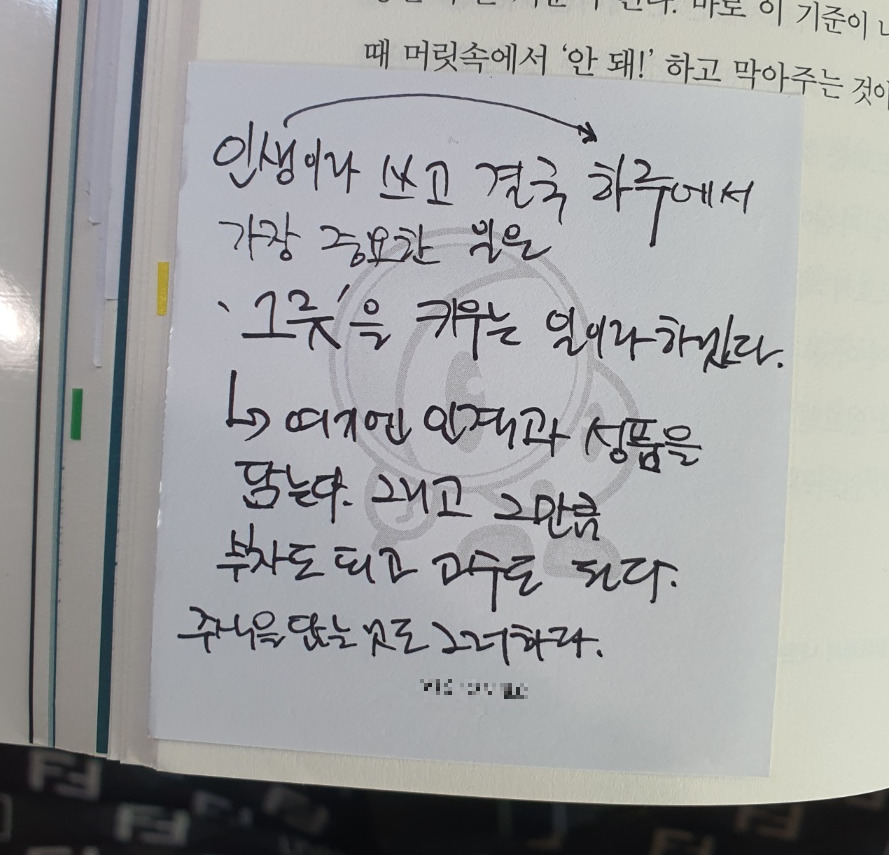 때 머릿속에서 '안 돼!' 하고 막아주는 것이
인생이라 쓰고 결국 하루에서
가장 중요한 일은
'그릇'을 키우는 일이라 하겠다.
↳ 여기엔 인격과 성품을
담는다. 그리고 그만큼
부자도 되고 고수도 된다.
담는 것도 그러하다.